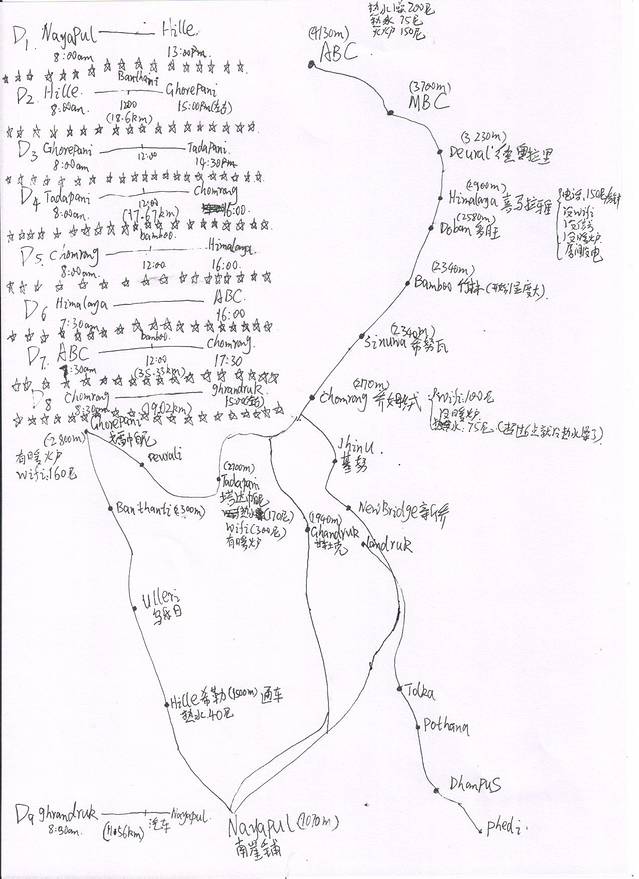 D1 Nayapul Hille
8:00am 13:00pm
Banthani
D2 Hille Ghorepani
8:00am 12:00 15:00pm
(18.6km)
D3 Ghorepani Tadapani
8:00am 12:00 14:30pm
D4 Tadapani Chomrong
8:00am 12:00 16:00
(17.67km)
bamboo
D5 Chomrong Himalaga
8:00am 12:00 16:00
D6 Himalaga ABC
7:30am 16:00
bamboo
D7 ABC Chomrong
7:30am 12:00 17:30
(35.33km)
D8 Chomrong ghrandruk
8:30am 15:00
(19.02km)
热水1壶200尼
热水 75尼
火炉 150尼
(4130m)
ABC
(3700m)
MBC
(3230m)
Deurali 德里拉里
(2900m)
Himalaga 喜马拉雅
电话,150尼/分钟
没wifi
没信号
没暖炉
房间没电
(2580m)
Doban 多旺
(2340m)
Bamboo 竹林
(2340m)
Sinuwa 希努瓦
(2170m)
Chomrong
wifi 100尼
没暖炉
热水:75尼
Ghorepani
(2800m)
有暖炉
wifi:160尼
Deurali
JhinU
基努
(2700m)
Tadapani
塔达帕尼
热水(170尼)
wifi(300尼)
有暖炉
Banthanti(2300m)
New Bridge 新桥
(1940m)
Ghandruk
甘杜克
Landruk
Ulleri
乌列日
Hille 希勒 (1500m) 通车
热水40尼
Tolka
Pothana
Dhampus
phedi
D9 ghrandruk Nayapul
8:30am (11.56km) 汽车
Nayapul (1070m)
南崖铺